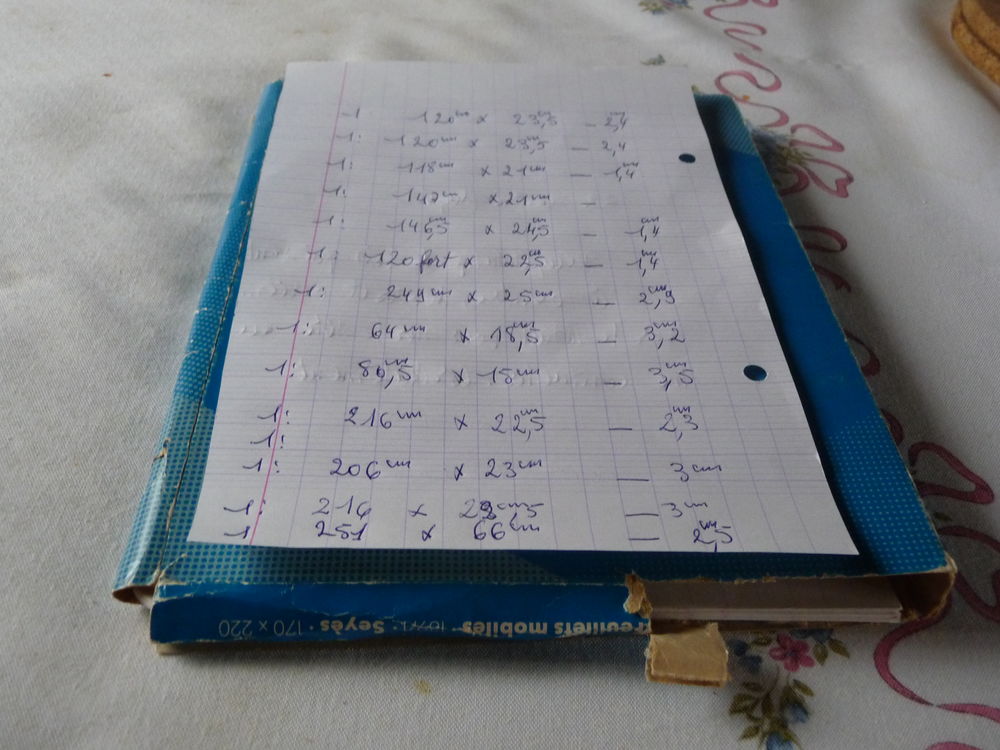 1: 120cm x 23,5cm - 2,4cm
1: 120cm x 23,5cm - 2,4
1: 118cm x 21cm - 1,4cm
1: 147cm x 21cm -
1: 146,5cm x 24,5cm - 1,4cm
1: 120 fort x 22,5cm - 1,4cm
1: 249cm x 25cm - 2,9cm
1: 64cm x 18,5cm - 3,2cm
1: 80,5cm x 15cm - 3,5cm
1: 216cm x 22,5cm - 2,3cm
1:
1: 206cm x 23cm - 3cm
1: 216 x 23cm,5 - 3cm
1 251 x 66cm - 2,5cm
Feuillets mobiles Seyès · 170 x 220